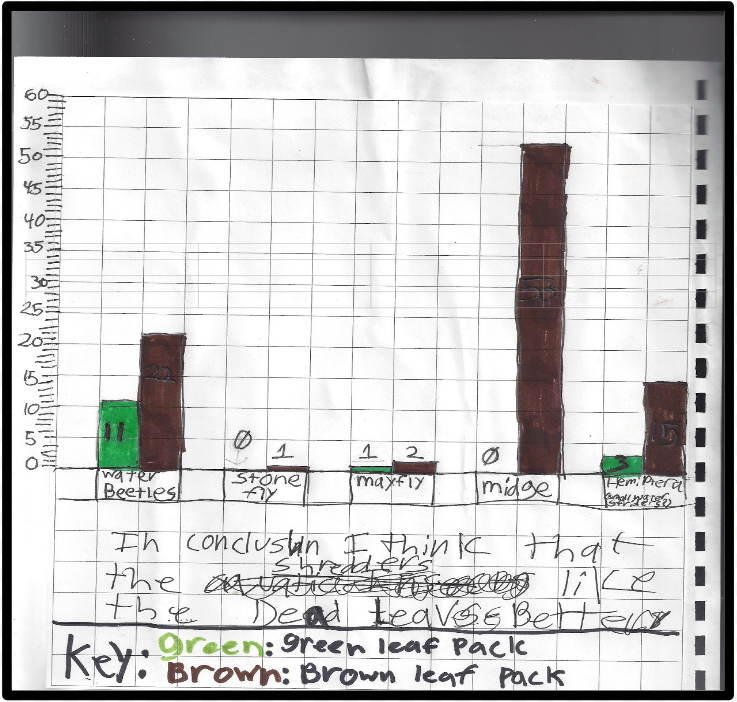 60
55
50
45
40
35
30
25
20
15
10
5
0
11
22
0
1
1
2
0
53
3
15
water Beetles
stone fly
mayfly
midge
Hemiptera
small water
striders
In conclusuin I think that
the shredders like
the Dead Leaves Better
Key: green: green leaf pack
Brown: Brown leaf pack